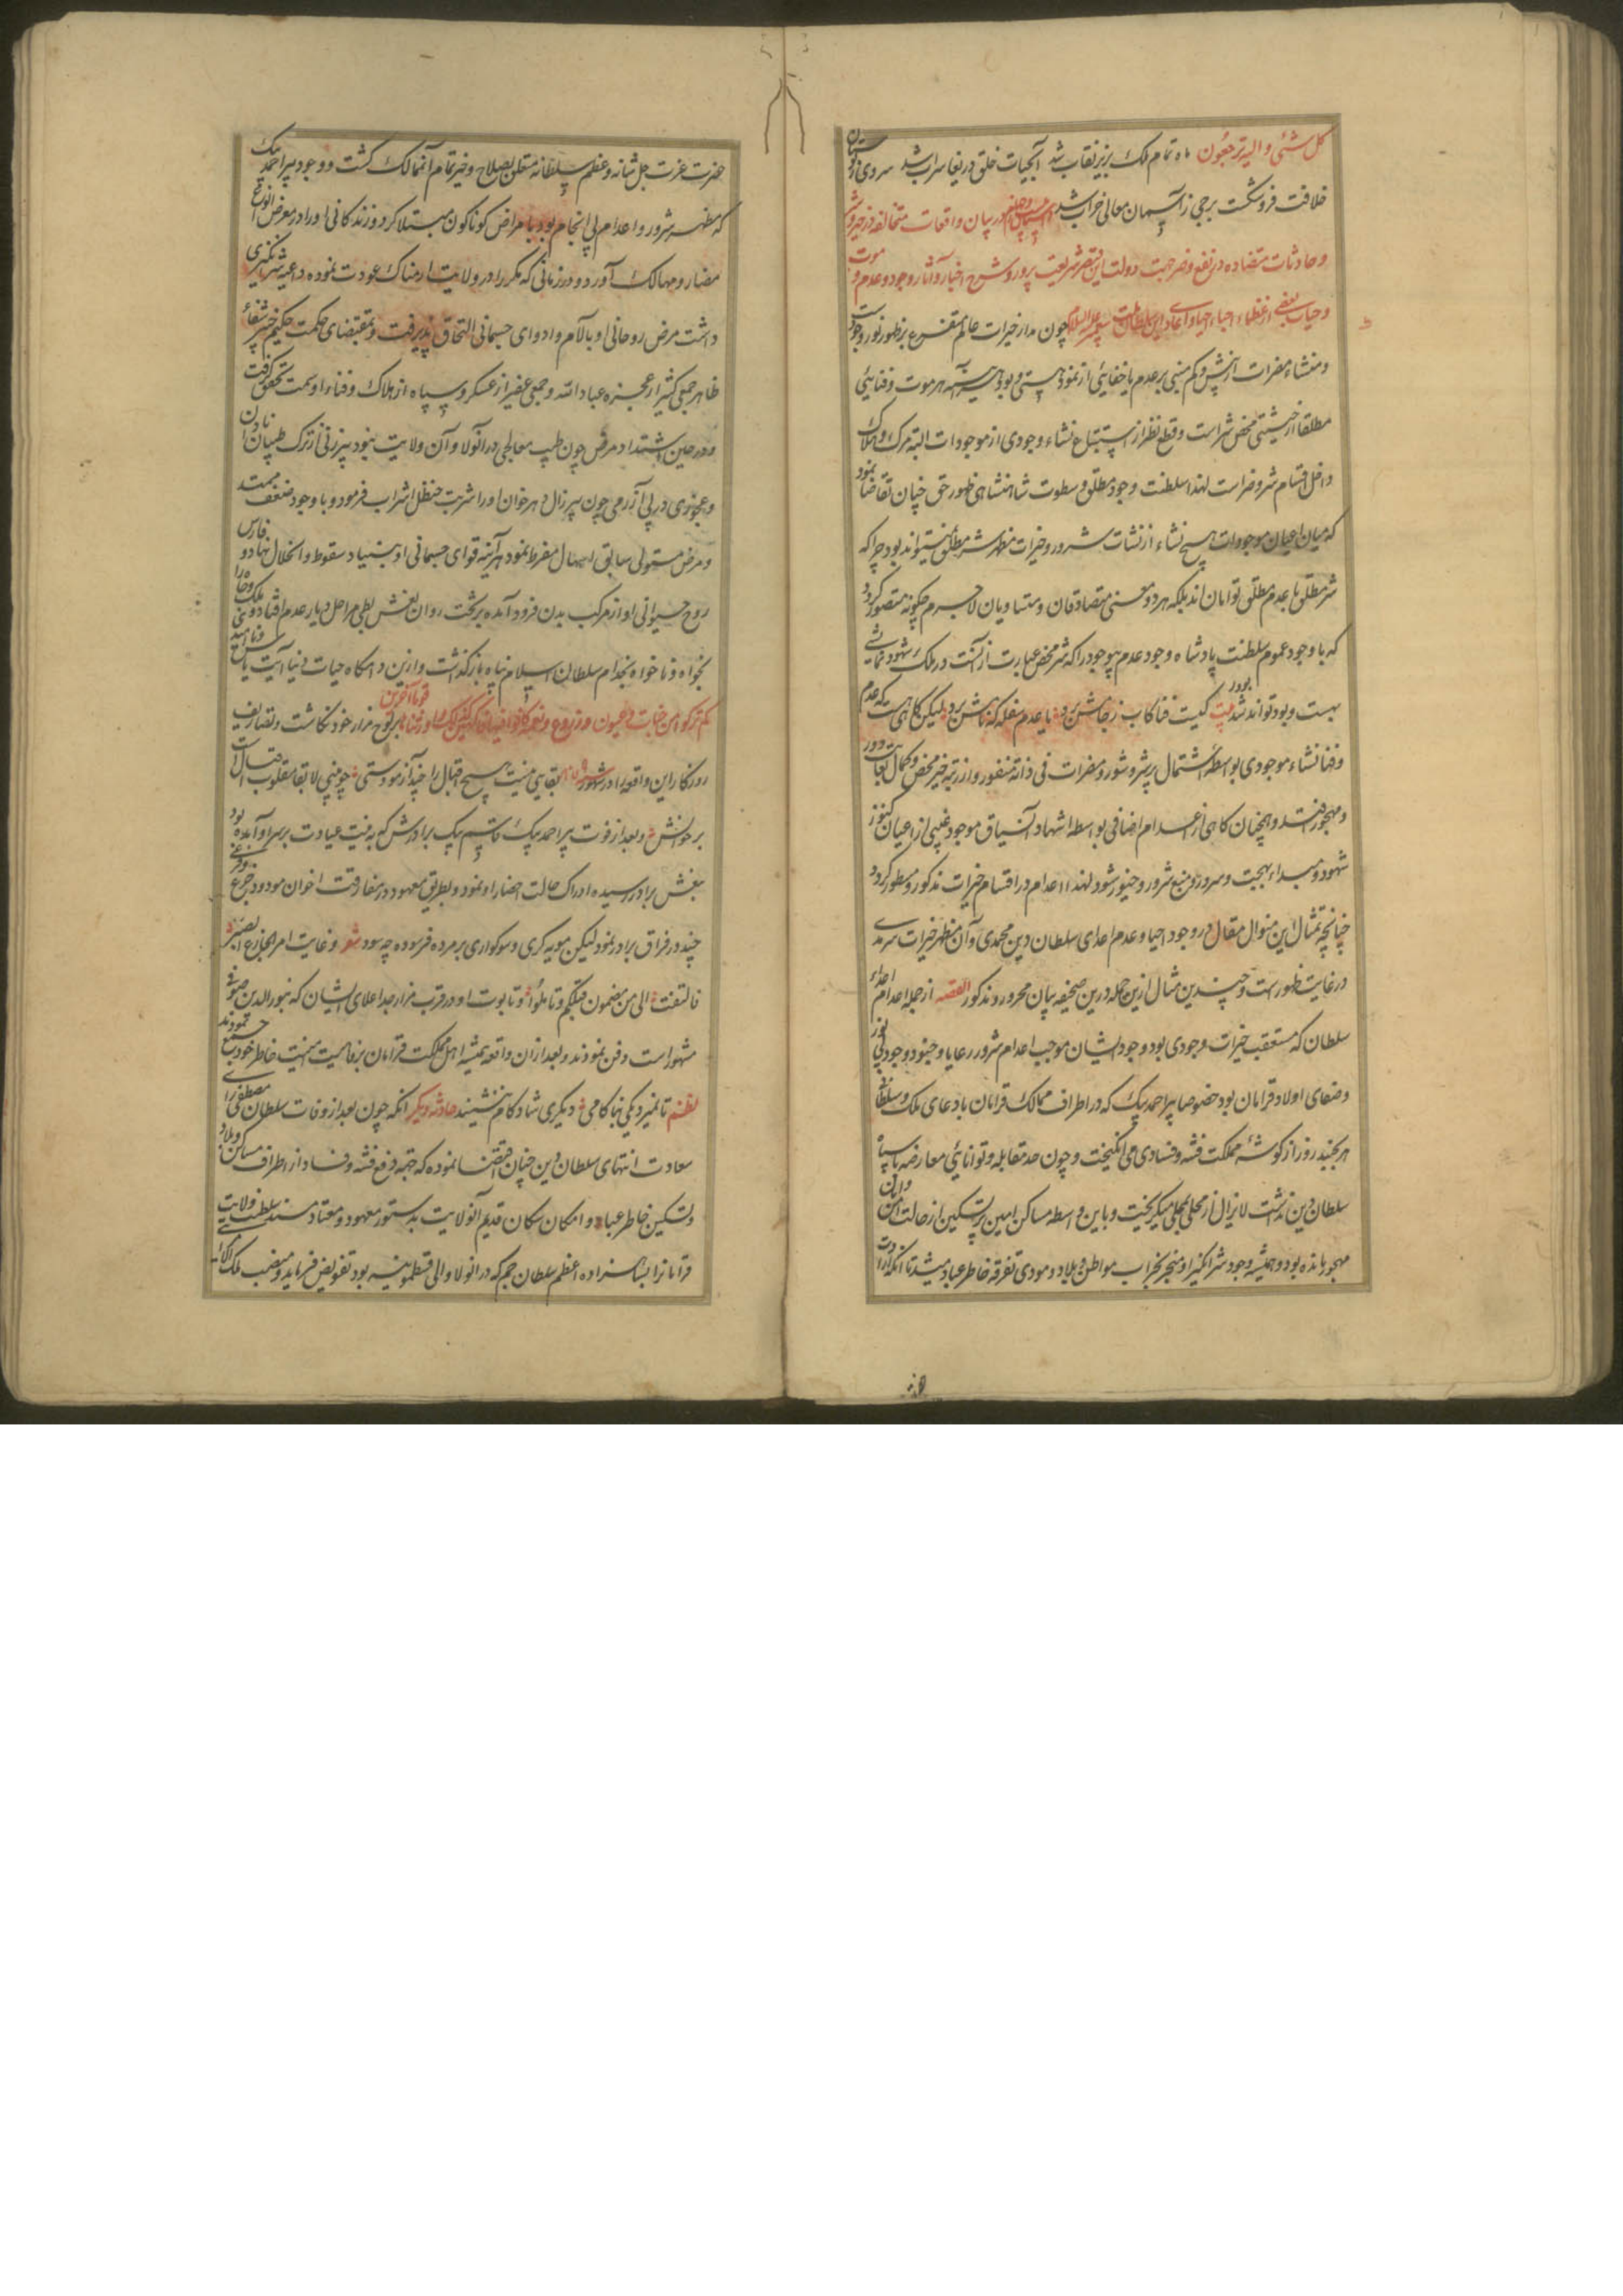 كل شئی و الیه ترجعون ماه تمام ملک بزیر نقاب شد آبحیات خلق دریغا سراب شد سروی ز بوستان
خلافت فروشکست برجی ز آسمان معالی خراب شد در بیان واقعات متخالفه در خیر و شر
و حادثات متضاده در نفع و ضر جهت دولت این قیصر شریعت پرور و شرح اخبار و آثار وجود و عدم و موت
و حیات بعضی از عظماء احباء چون مدار خیرات عالم متفرع بر ظهور نور وجود
و منشاء مضرات از بیش و کم مبنی بر عدم یا خفایی از نمود هستی و بود هر موت و فنایی
مطلقا از حیثیتی محض شر است و قطع نظر از استتباع نشاء وجودی از موجودات البته مرک و هلاک
داخل اقسام شر و ضر است لهذا سلطنت وجود مطلق و سطوت شاهنشاهی ظهور حق چنان تقاضا نمود
که میان اعیان موجودات هیچ نشاء از نشات شرور و خیرات مظهر شر مطلق نمیتواند بود چرا که
شر مطلق با عدم مطلق توامان اند بلکه هر دو معنی متصادقان و متساویان لاجرم چکونه متصور کردد
که با وجود عموم سلطنت پادشاه وجود عدم بیوجود را که شر محض عبارت از آنست در ملک شهود نمایشی
بهست و بود تواند شد بیت کیست فنا کآب ز جامش برد یا عدم سفله که نامش برد لیکن کاهی هست که عدم
و فنا نشاء موجودی بواسطه اشتمال بر شر و شور و مضرات فی ذاته منفور و از رتبه خیر محض و کمال بغایت دور
و مهجور افتد و همچنان کاهی از اعدام اضافی بواسطه اشهاد آنسیاق موجود غیبی از اعیان کنوز
شهود و مبداء بهجت و سرور و منبع شرور و حبور شود لهذا اعدام در اقسام خیرات مذکور و مسطور کردد
چنانچه تمثال این منوال مقال در وجود احیا و عدم اعدای سلطان دین محمدی و آن مظهر خیرات سرمدی
در غایت ظهور است و چندین مثال ازین جمله درین صحیفه بیان محرر و مذکور القصه از جمله اعدام اعداء
سلطان که مستعقب خیرات وجودی بود و وجود ایشان موجب اعدام شرور رعایا و جنود وجود بی نور
و صفای اولاد قرامان بود خصوصا پیر احمد بیک که در اطراف ممالک قرامان بادعای ملک و سلطانی
هر چند روز از کوشه مملکت فتنه و فسادی می انکیخت و چون حد مقابله و توانایی معارضه با سپاه
سلطان دین نداشت لایزال از محلی بمحلی میکریخت و باین واسطه مساکن امین پر تسکین از حالت امن و امان
مهجور مانده بود و همیشه وجود شر انکیز او منجر بخراب مواطن و بلاد و مودی تفرقه خاطر عباد میشد تا آنکه ارادت
حضرت عزت جل شانه و عظم سلطانه متعلق بصلاح و خیر تمام آنممالک کشت و وجود پیر احمد بیک
که مظهر شرور و اعدام بی انجام بود با مراض کوناکون مبتلا کرد و زندکانی او را در معرض انواع
مضار و مهالک آورد و در زمانی که مکررا در ولایت ارمناک عودت نموده داعیه شر انکیزی
داشت مرض روحانی او بآلام و ادوای جسمانی التحاق پذیرفت و بمقتضای حکمت حکیم خبیر شفاء
ظاهر جمعی کثیر از عجزه عباد الله و جمعی غفیر از عسکر و سپاه از هلاک و فناء او سمت تحقق کرفت
و در حین اشتداد مرض چون طبیب معالجی در آنولا و آن ولایت نبود پیر زنی از ترک طبیبان نادان
و عجوزی در پی آزرمی چون پیر زال دهر خوان او را شربت حنظل اشراب فرمود و با وجود ضعف بیمت
و مرض مستولی سابق اسهال مفرط نمود هر آینه قوای جسمانی او بنیاد سقوط و انحلال نهاد و فارس
روح حیوانی او از مرکب بدن فرود آمده برتخت روان نعش بطی مراحل دیار عدم افتاد و ملک و جاه را
بخواه و ناخواه بخدام سلطان اسلام پناه بازکذشت و ازین دامکاه حیات دنیا آیت یاس
کم ترکوا من جنات و عیون و زروع و نعمة کانوا فیها فاکهین کذلک و اورثناها قوما آخرین بر لوح مزار خود نکاشت و تصاریف
روزکار این واقعه را در شهور بقایی نیست هیچ اقبال را چند آزمودستی چو مبنی لا بقا مقلوب اقبال است
بر خوانش و بعد از فوت پیر احمد بیک قاسم بیک برادرش که به نیت عیادت بر سر او آمده بود
بنعش برادر رسیده ادراک حالت احضار او نمود و بطریق معهود در مفارقت اخوان مودود جزع و فزعی
چند در فراق برادر نمود لیکن مویه کری و سوکواری بر مرده فرسوده چه سود شعر و غایت امر الجازع الصبر
فالتفت الی من مضمون قبلکم و تاملوا و تابوت او در قرب مزار جد اعلای ایشان که بنور الدین صوفی
مشهور است دفن نمودند و بعد از ان واقعه همیشه اهل مملکت قرامان برفاهیت امنیت خاطر خود جمع نمودند
نظم تا نمیرد یکی بناکامی دیکری شادکام ننشیند حادثه دیکر انکه چون بعد از وفات سلطان مصطفی رای
سعادت انتهای سلطان دین چنان اقتضا نموده که جهة دفع فتنه و فساد از اطراف مساکن و بلاد
و تسکین خاطر عباد و امکان سکان قدیم آنولایت بدستور معهود و معتاد مسند سلطنت ولایت
قرامانرا بشاهزاده اعظم سلطان جم که در انولا والی قسطمونیه بود تفویض فرماید و منصب ملک آرائی